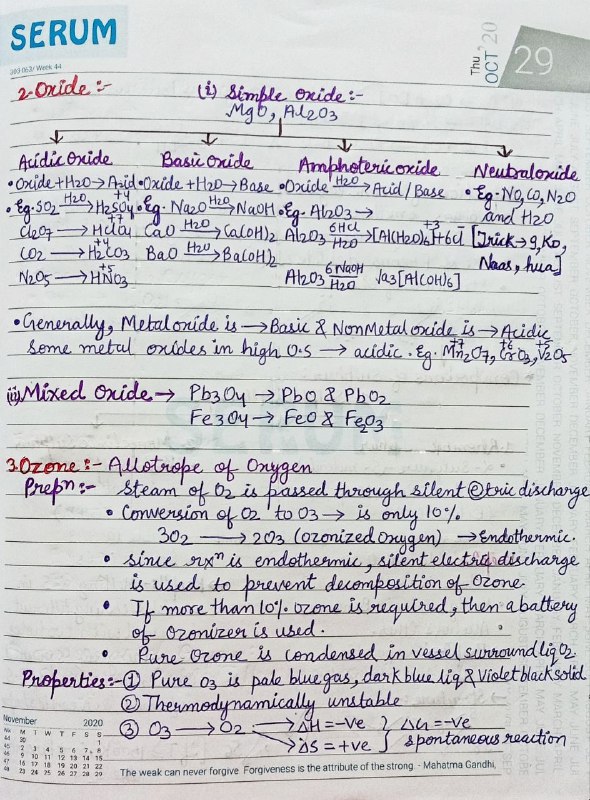 SERUM
303-063/ Week 44
Thu OCT' 20 29
2. Oxide :- (i) Simple oxide :-
MgO, Al2O3
Acidic oxide Basic oxide Amphoteric oxide Neutral oxide
• Oxide + H2O → Acid • Oxide + H2O → Base • Oxide H2O→ Acid / Base • Eg. NO, CO, N2O
• Eg. SO2 H2O→ H2SO4 +4 • Eg. Na2O H2O→ NaOH • Eg. Al2O3 → and H2O
Cl2O7 → HClO4 +7 CaO H2O→ Ca(OH)2 Al2O3 6HCl→ H2O [Al(H2O)6]+3 + 6Cl [Trick → 9, Ko,
CO2 → H2CO3 +4 BaO H2O→ Ba(OH)2 Naas, hua]
N2O5 → HNO3 +5 Al2O3 6NaOH→ H2O Na3[Al(OH)6]
• Generally, Metal oxide is → Basic & NonMetal oxide is → Acidic
Some metal oxides in high O.S → acidic. Eg. Mn2O7 +7, CrO3 +6, V2O5 +5
(ii) Mixed Oxide → Pb3O4 → PbO & PbO2
Fe3O4 → FeO & Fe2O3
3. Ozone :- Allotrope of Oxygen
Prepn :- Steam of O2 is passed through silent ⓔtric discharge
• Conversion of O2 to O3 → is only 10%
3O2 → 2O3 (ozonized oxygen) → Endothermic.
• since rxn is endothermic, silent electric discharge
is used to prevent decomposition of Ozone.
• If more than 10% ozone is required, then a battery
of Ozonizer is used.
• Pure Ozone is condensed in vessel surround liq O2
Properties :- ① Pure O3 is pale blue gas, dark blue liq & Violet black solid
② Thermodynamically unstable
③ O3 → O2 → ΔH = -ve } ΔG = -ve
→ ΔS = +ve } spontaneous reaction
November 2020
Wk M T W T F S S
44 30 1
45 2 3 4 5 6 7 8
46 9 10 11 12 13 14 15
47 16 17 18 19 20 21 22
48 23 24 25 26 27 28 29
The weak can never forgive Forgiveness is the attribute of the strong. - Mahatma Gandhi,